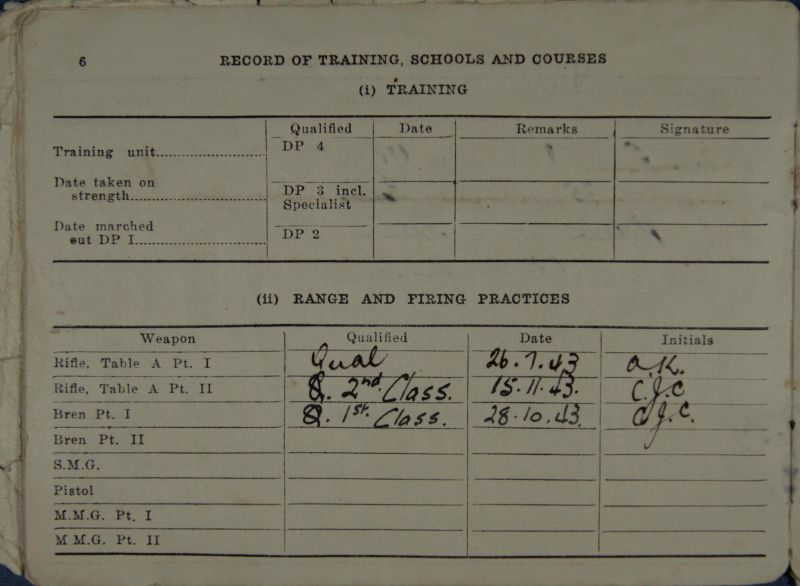 6
RECORD OF TRAINING, SCHOOLS AND COURSES
(i) TRAINING
Qualified Date Remarks Signature
Training unit........................... DP 4
Date taken on
strength.................................. DP 3 incl.
Specialist
Date marched
out DP I................................. DP 2
(ii) RANGE AND FIRING PRACTICES
Weapon Qualified Date Initials
Rifle, Table A Pt. I Qual 26.7.43 A.K.
Rifle, Table A Pt. II Q. 2nd Class. 15.11.43. C.J.C
Bren Pt. I Q. 1st. Class. 28.10.43. C.J.C.
Bren Pt. II
S.M.G.
Pistol
M.M.G. Pt. I
M M.G. Pt. II